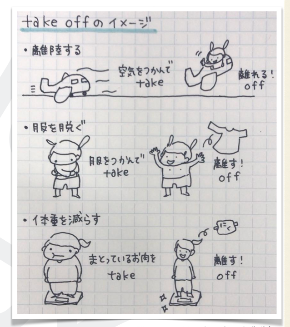 take offのイメージ
・離陸する
空気をつかんで
take
離れる!
off
・服を脱ぐ
服をつかんで
take
離す!
off
・体重を減らす
まとっているお肉を
take
にく
離す!
off